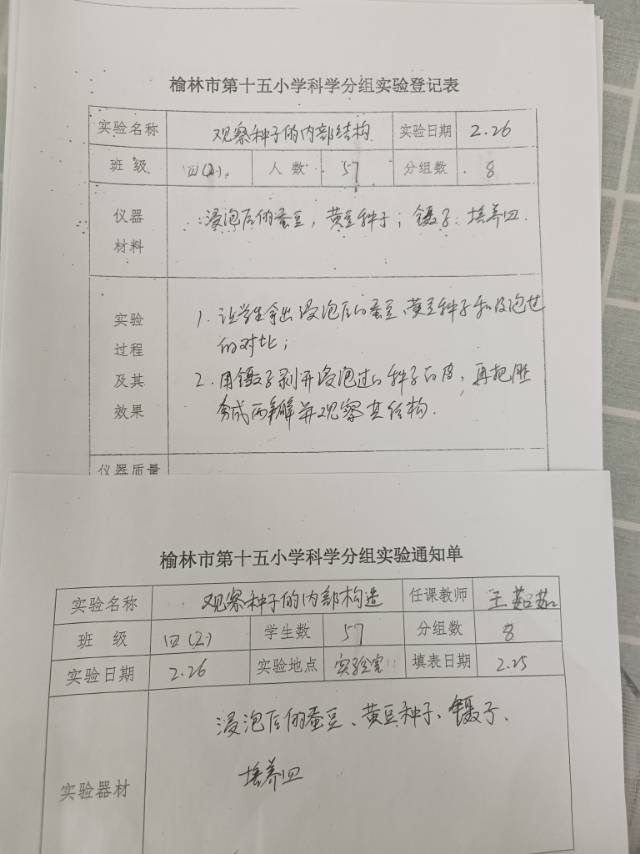 榆林市第十五小学科学分组实验登记表
实验名称 观察种子的内部结构 实验日期 2.26
班 级 四(2) 人 数 57 分组数 8
仪器 浸泡后的蚕豆，黄豆种子；镊子、培养皿
材料
实验 1. 让学生拿出浸泡后的蚕豆、黄豆种子和没泡过
过程 的对比；
及其 2. 用镊子剥开浸泡过的种子的皮，再把
效果 分成两瓣并观察其结构.
仪器质量
榆林市第十五小学科学分组实验通知单
实验名称 观察种子的内部构造 任课教师 王茹茹
班 级 四(2) 学生数 57 分组数 8
实验日期 2.26 实验地点 实验室 填表日期 2.25
浸泡后的蚕豆、黄豆种子、镊子、
实验器材 培养皿